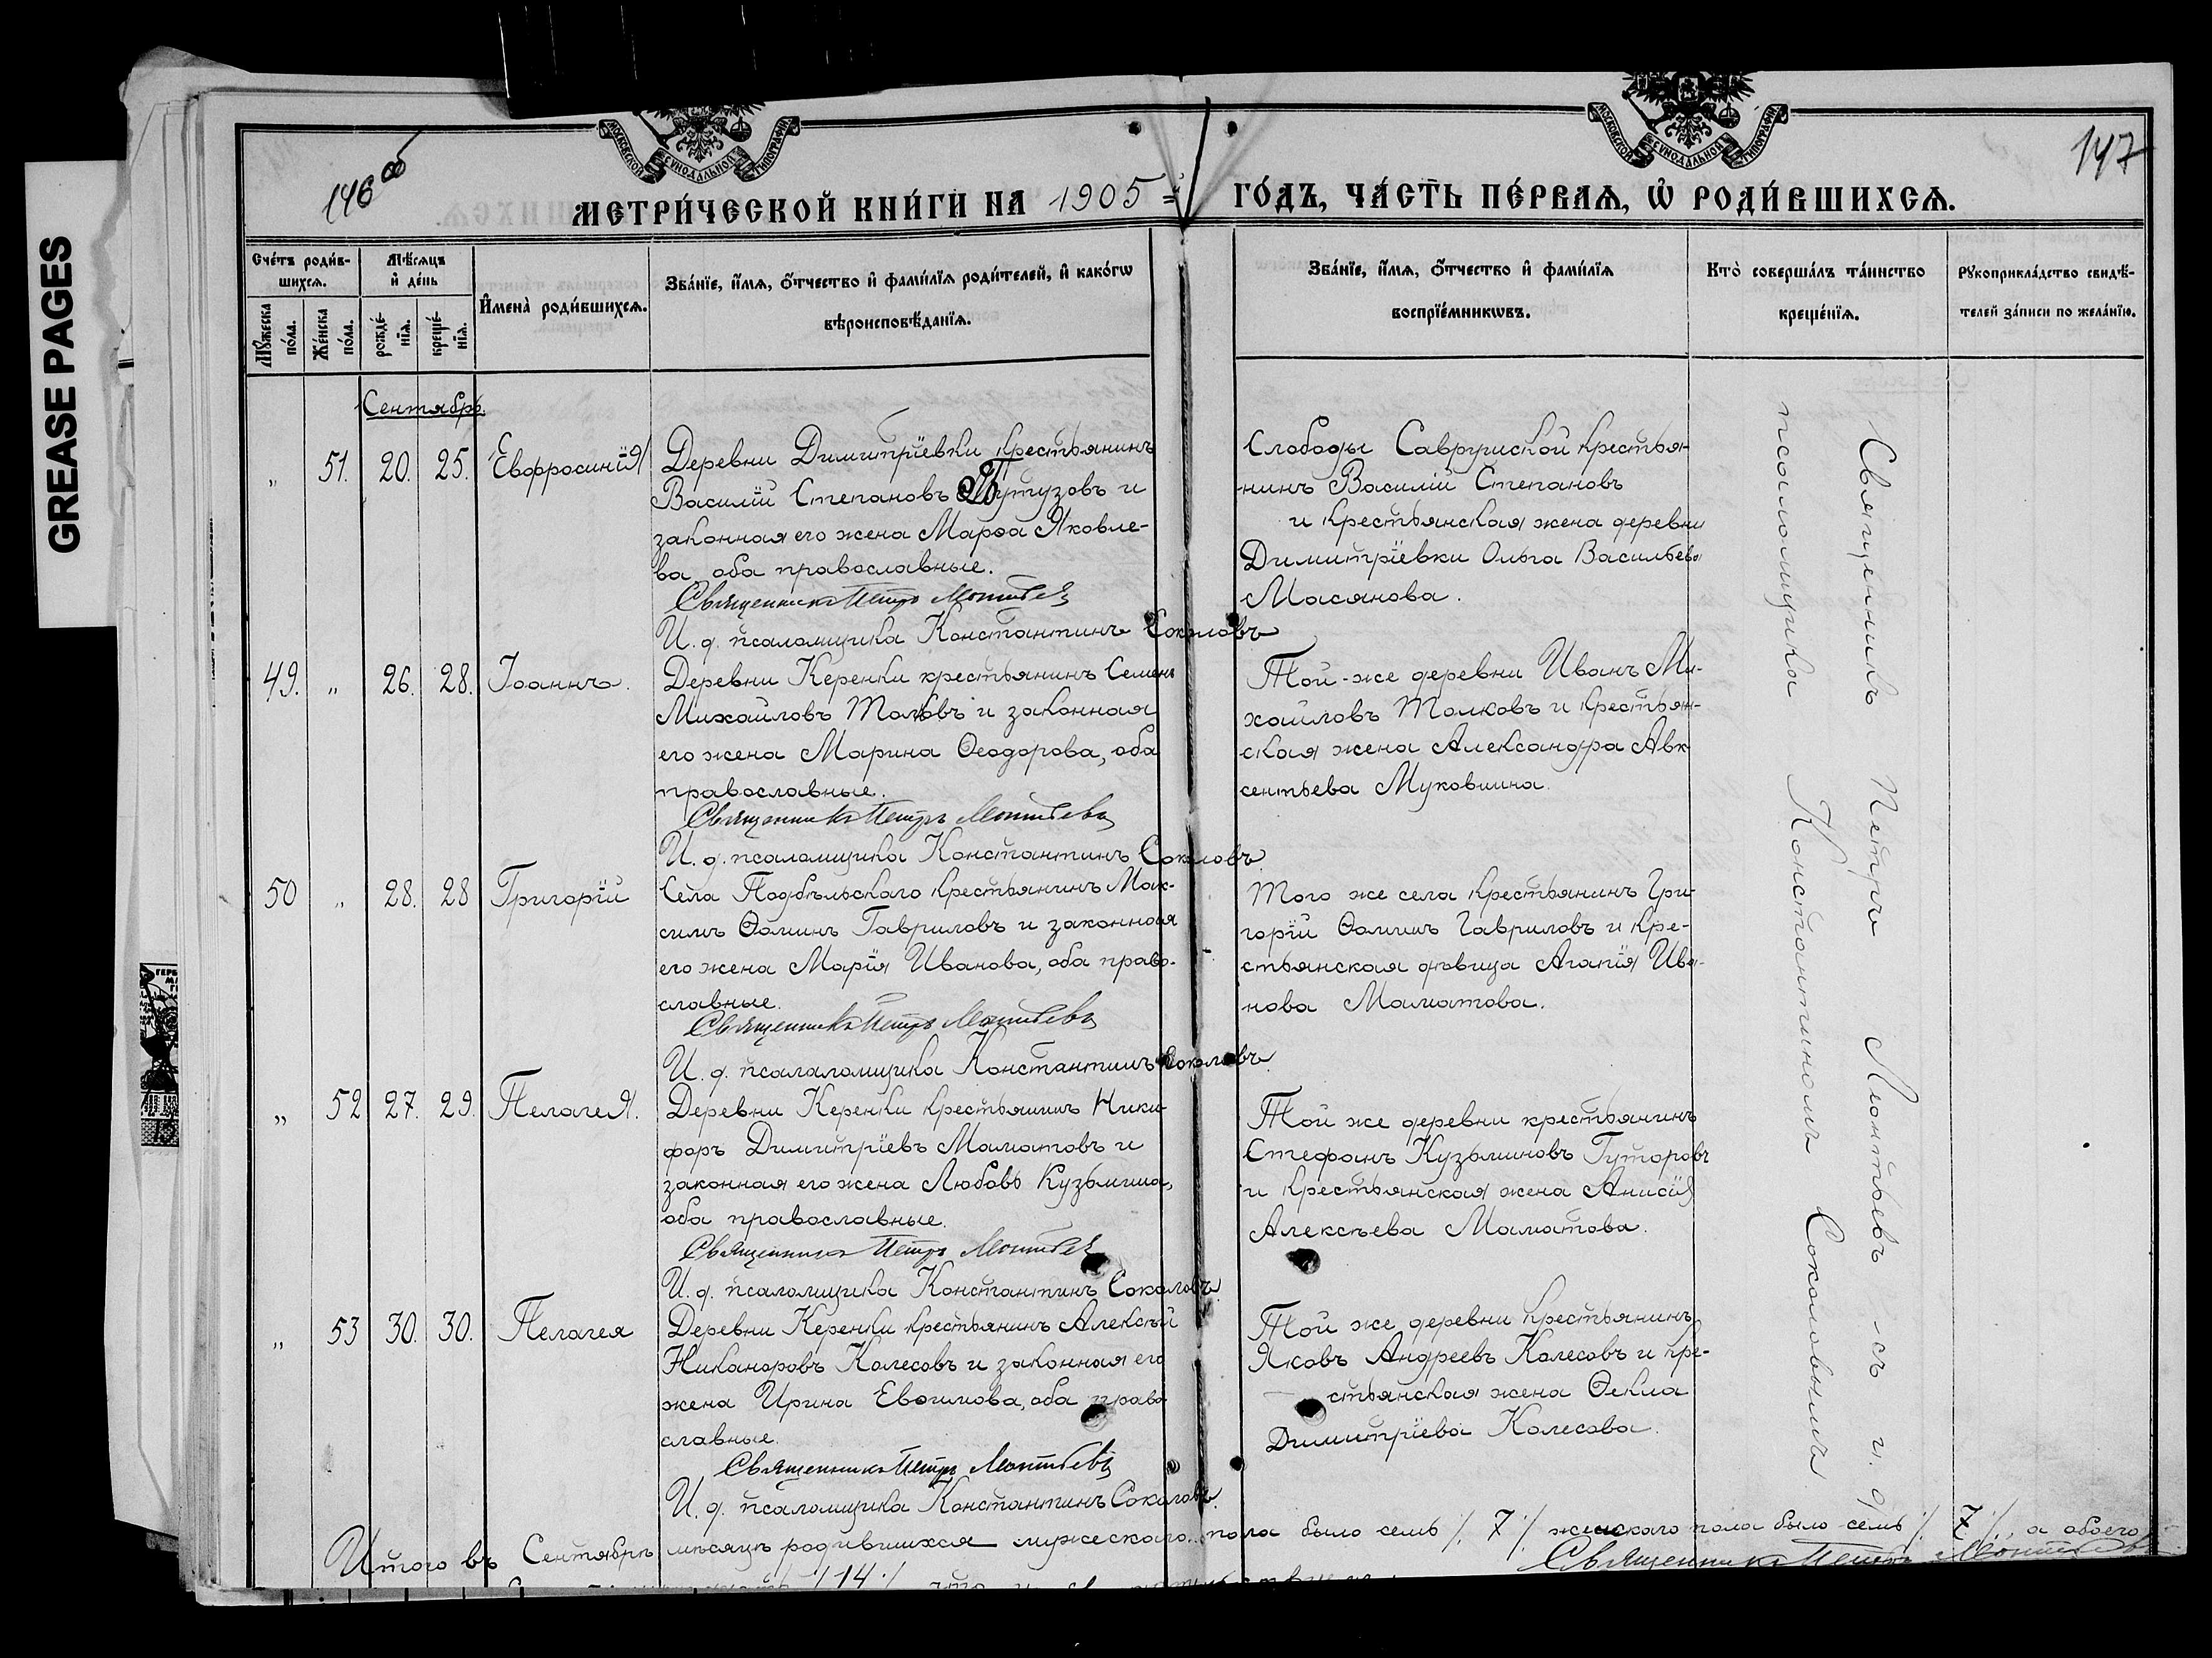 GREASE PAGES
МОСКОВСКОЙ СѴНОДАЛЬНОЙ ТИПОГРАФІИ
МОСКОВСКОЙ СѴНОДАЛЬНОЙ ТИПОГРАФІИ
146 об
147
МЕТРИ́ЧЕСКОЙ КНИ́ГИ НА 1905 ГО́ДЪ, ЧА́СТЬ ПЕ́РВАѦ, Ѡ҆ РОДИ́ВШИХСѦ.
Сче́тъ роди́в-
шихсѧ.
Мѣ́сѧцъ
и҆ де́нь
Мꙋ́жеска по́ла.
Же́нска по́ла.
рожде́-
нїѧ.
креще́-
нїѧ.
И҆мена̀ роди́вшихсѧ.
Зва́нїе, и҆́мѧ, ѻ҆́тчество и҆ фами́лїѧ роди́телей, и҆ како́гѡ
вѣроисповѣ́данїѧ.
Зва́нїе, и҆́мѧ, ѻ҆́тчество и҆ фами́лїѧ
воспрїе́мникѡвъ.
Кто̀ соверша́лъ та́инство
креще́нїѧ.
Рꙋкоприкла́дство свидѣ́-
телей за́писи по жела́нїю.
Сентябрь.
„ 51. 20. 25. Евфросинія
Деревни Димитріевки крестьянинъ
Василій Степановъ
законная его жена Марѳа Яковле-
ва, оба православные.
Священникъ Петръ Леонтьев
И. д. псаломщика Константинъ Соколовъ
Слободы Саврушской крестья-
нинъ Василій Степановъ
и крестьянская жена деревни
Димитріевки Ольга Васильева
Масянова.
49. „ 26. 28. Іоаннъ.
Деревни Керенки крестьянинъ Семенъ
Михайловъ Толковъ и законная
его жена Марина Ѳеодорова, оба
православные.
Священникъ Петръ Леонтьевъ
И. д. псаломщика Константинъ Соколовъ
Той-же деревни Иванъ Ми-
хайловъ Толковъ и крестьян-
ская жена Александра Авк
сентьева Муковшина.
50 „ 28. 28 Григорій
Села Подбѣльскаго крестьянинъ Мак-
симъ Ѳоминъ Гавриловъ и законная
его жена Марія Иванова, оба право-
славные.
Священникъ Петръ Леонтьевъ
И. д. псалаломщика Константинъ Соколовъ.
Того же села крестьянинъ Гри-
горій Ѳоминъ Гавриловъ и кре-
стьянская дѣвица Агапія Ива-
нова Маматова.
„ 52 27. 29. Пелагея.
Деревни Керенки крестьянинъ Ники
форъ Димитріевъ Маматовъ и
законная его жена Любовь Кузьмина,
оба православные.
Священникъ Петръ Леонтьев
И. д. псаломщика Константинъ Соколовъ
Той же деревни крестьянинъ
Стефанъ Кузьминовъ Гуторовъ
и крестьянская жена Анисія
Алексѣева Маматова.
„ 53 30. 30. Пелагея
Деревни Керенки крестьянинъ Алексѣй
Никаноровъ Колесовъ и законная его
жена Ирина Евѳимова, оба право
славные.
Священникъ Петръ Леонтьевъ
И. д. псаломщика Константинъ Соколовъ.
Той же деревни крестьянинъ
Яковъ Андреевъ Колесовъ и кре-
стьянская жена Ѳекла
Димитріева Колесова.
Священникъ Петръ Леонтьевъ съ и. д.
псаломщика Константиномъ Соколовымъ
Итого въ Сентябрѣ мѣсяцѣ родившихся мужескаго пола было семь /. 7 /. женскаго пола было семь /. 7 /., а обоего
Священникъ Петръ Леонтьевъ
/ 14 /